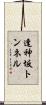 達神坂トンネル